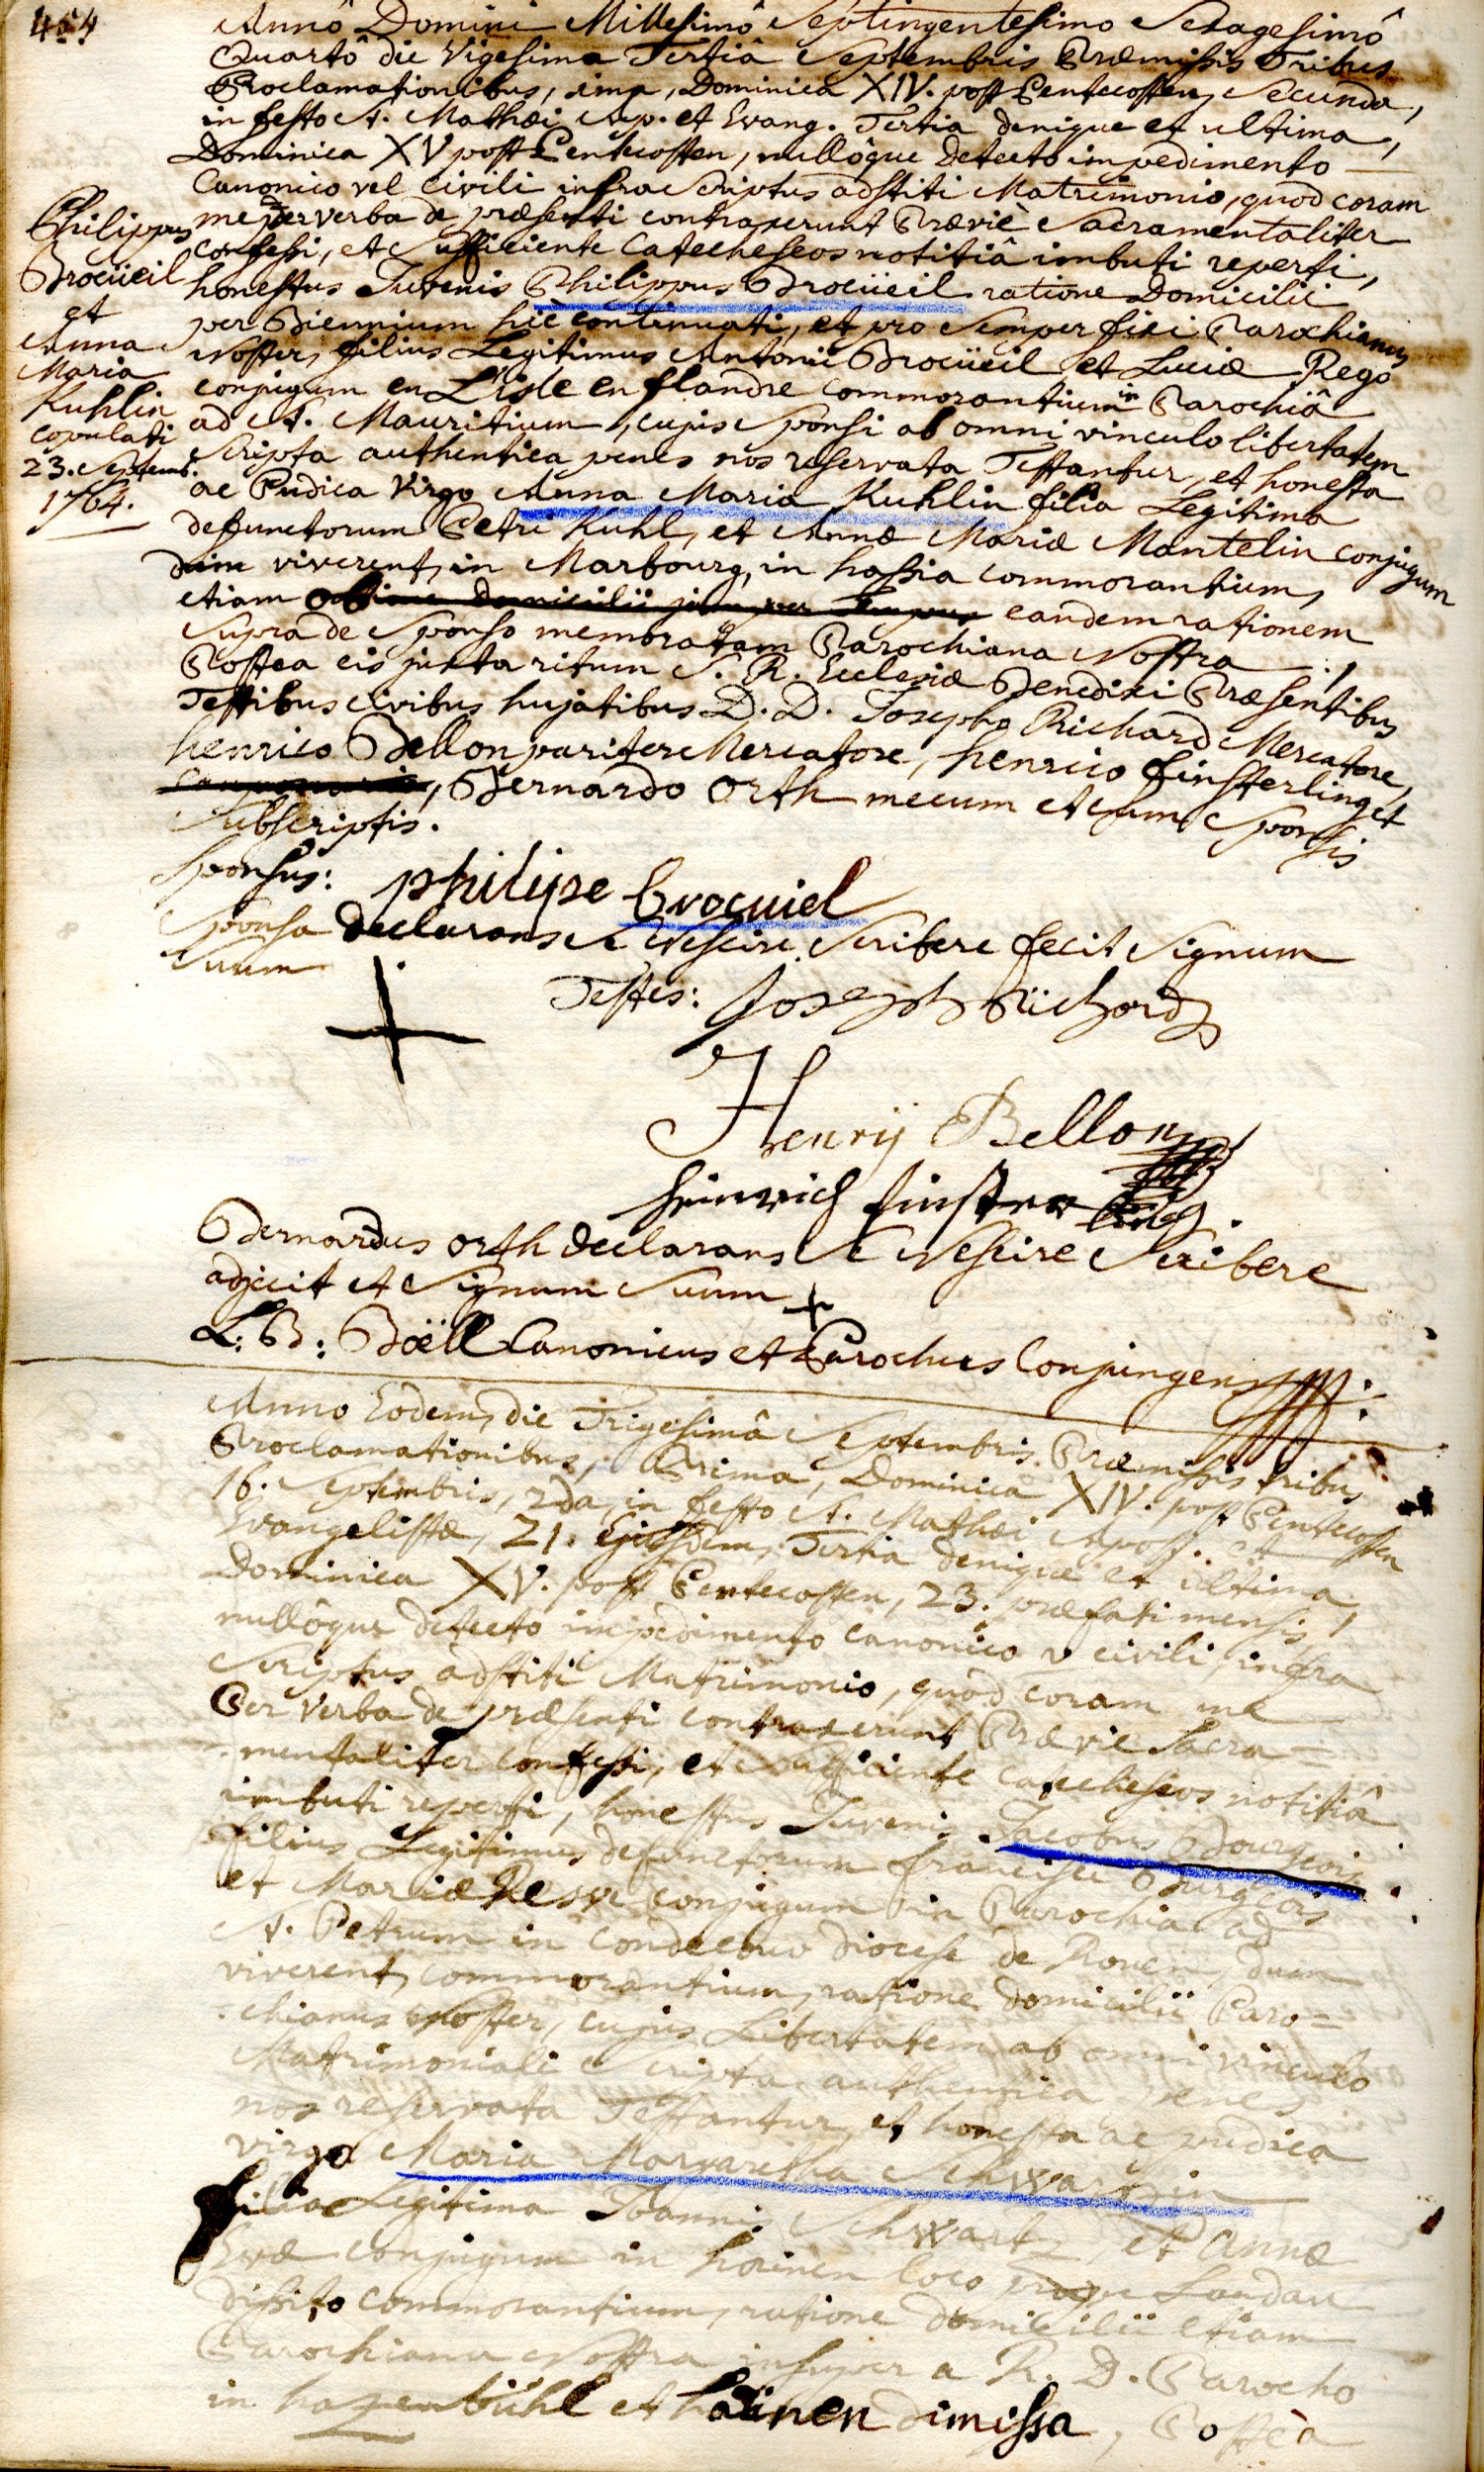 464
Annô Domini Millesimô Septingentesimo Sexagesimô
Quartô die Vigesima Tertiâ Septembris Præmissis Tribus
Proclamationibus, ima, Dominica XIV. post Pentecosten, Secunda,
in festo S. Mathæi Ap. et Evang. Tertia denique et ultima,
Dominica XV post Pentecosten, nullôque Detecto impedimento
Canonico vel Civili infra Scriptus adstiti Matrimonio, quod coram
me per verba de præsenti contraxerunt Præviè Sacramentaliter
confessi, et Sufficiente Catecheseos notitiâ imbuti reperti,
honestus Juvenis Philippus Brocüeil ratione Domicilii
per Biennium hic continuati, et pro Semper fixi Parochianus
Noster, filius Legitimus Antonii Brocüeil et Luciæ Rego
conjugum en L'isle en flandre commorantium in Parochiâ
ad S. Mauritium, cujus Sponsi ab omni vinculo libertatem
Scripta authentica penes nos reservata Testantur, et honesta
ac Pudica Virgo Anna Maria Kuhlin filia Legitima
defunctorum Petri Kuhl, et Annæ Mariæ Mantelin conjugum
dum viverent, in Marbourg, in hassia commorantium,
etiam ob eandem rationem
Supra de Sponso memoratam Parochiana Nostra
Postea eis juxta ritum S. R. Ecclesiæ Benedixi Præsentibus
Testibus Civibus hujatibus D. D. Josepho Richard Mercatore,
henrico Bellon pariter Mercatore, henrico finsterling et
Bernardo Orth mecum et cum Sponsis
Subscriptis.
Philippus
Brocüeil
et
Anna
Maria
Kuhlin
copulati
23. Septemb.
1764.
Sponsus: philipe brocuiel
Sponsa declarans Se Nescire Scribere fecit Signum
Suum +
Testes: Joseph Richard
Henrÿ Bellon
Heinrich finsterling.
Bernardus orth declarans Se Nescire Scribere
adjicit et Signum Suum +
L. B: Böell Canonicus et Parochus Conjungens
Anno Eodem, die Trigesimâ Septembris Præmissis tribus
Proclamationibus, Prima, Dominica XIV. post Pentecosten
16. Septembris, 2da, in festo S. Mathæi Apost. et
Evangelistæ, 21. Ejusdem, Tertia denique et ultima
Dominica XV. post Pentecosten, 23. præfati mensis,
nullôque detecto impedimento canonico v civili infra
Scriptus adstiti Matrimonio, quod coram me
Per Verba de præsenti contraxerunt Prævie Sacra
mentaliter confessi, et Sufficiente catecheseos notitiâ
imbuti reperti, honestus Juvenis Jacobus Bourgeois
filius Legitimus defunctorum francisci Bourgeois
et Mariæ conjugum in Parochia ad
S. Petrum in diocese de Rouen, dum
viverent, commorantium, ratione domicilii Paro=
chianus noster, cujus Libertatem ab omni vinculo
Matrimoniali Scripta authentica penes
nos reservata Testantur, et honesta ac pudica
virgo Maria Margaretha Schwartzin
filia Legitima Joannis Schwartz, et Annæ
Evæ conjugum in hainen loco prope Landau
dissito commorantium, ratione domicilii etiam
Parochiana Nostra insuper a R. D. Parocho
in hazenbühl et hainen dimissa, Postea